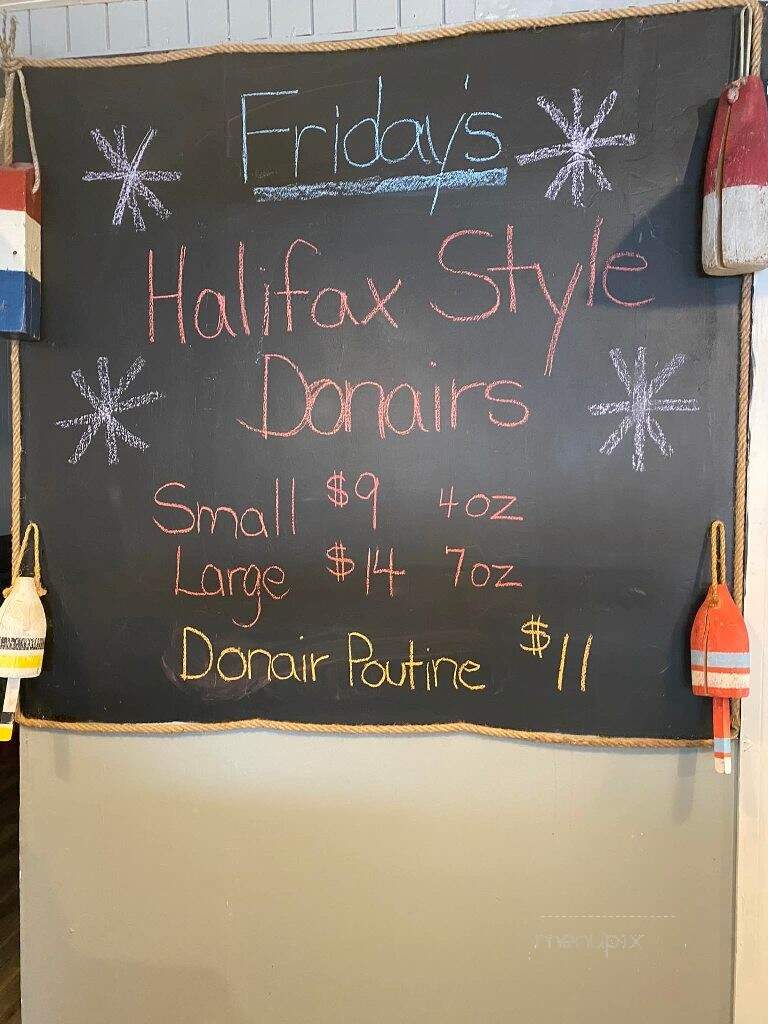 Friday's
Halifax Style
Donairs
Small $9 4oz
Large $14 7oz
Donair Poutine $11
menupix